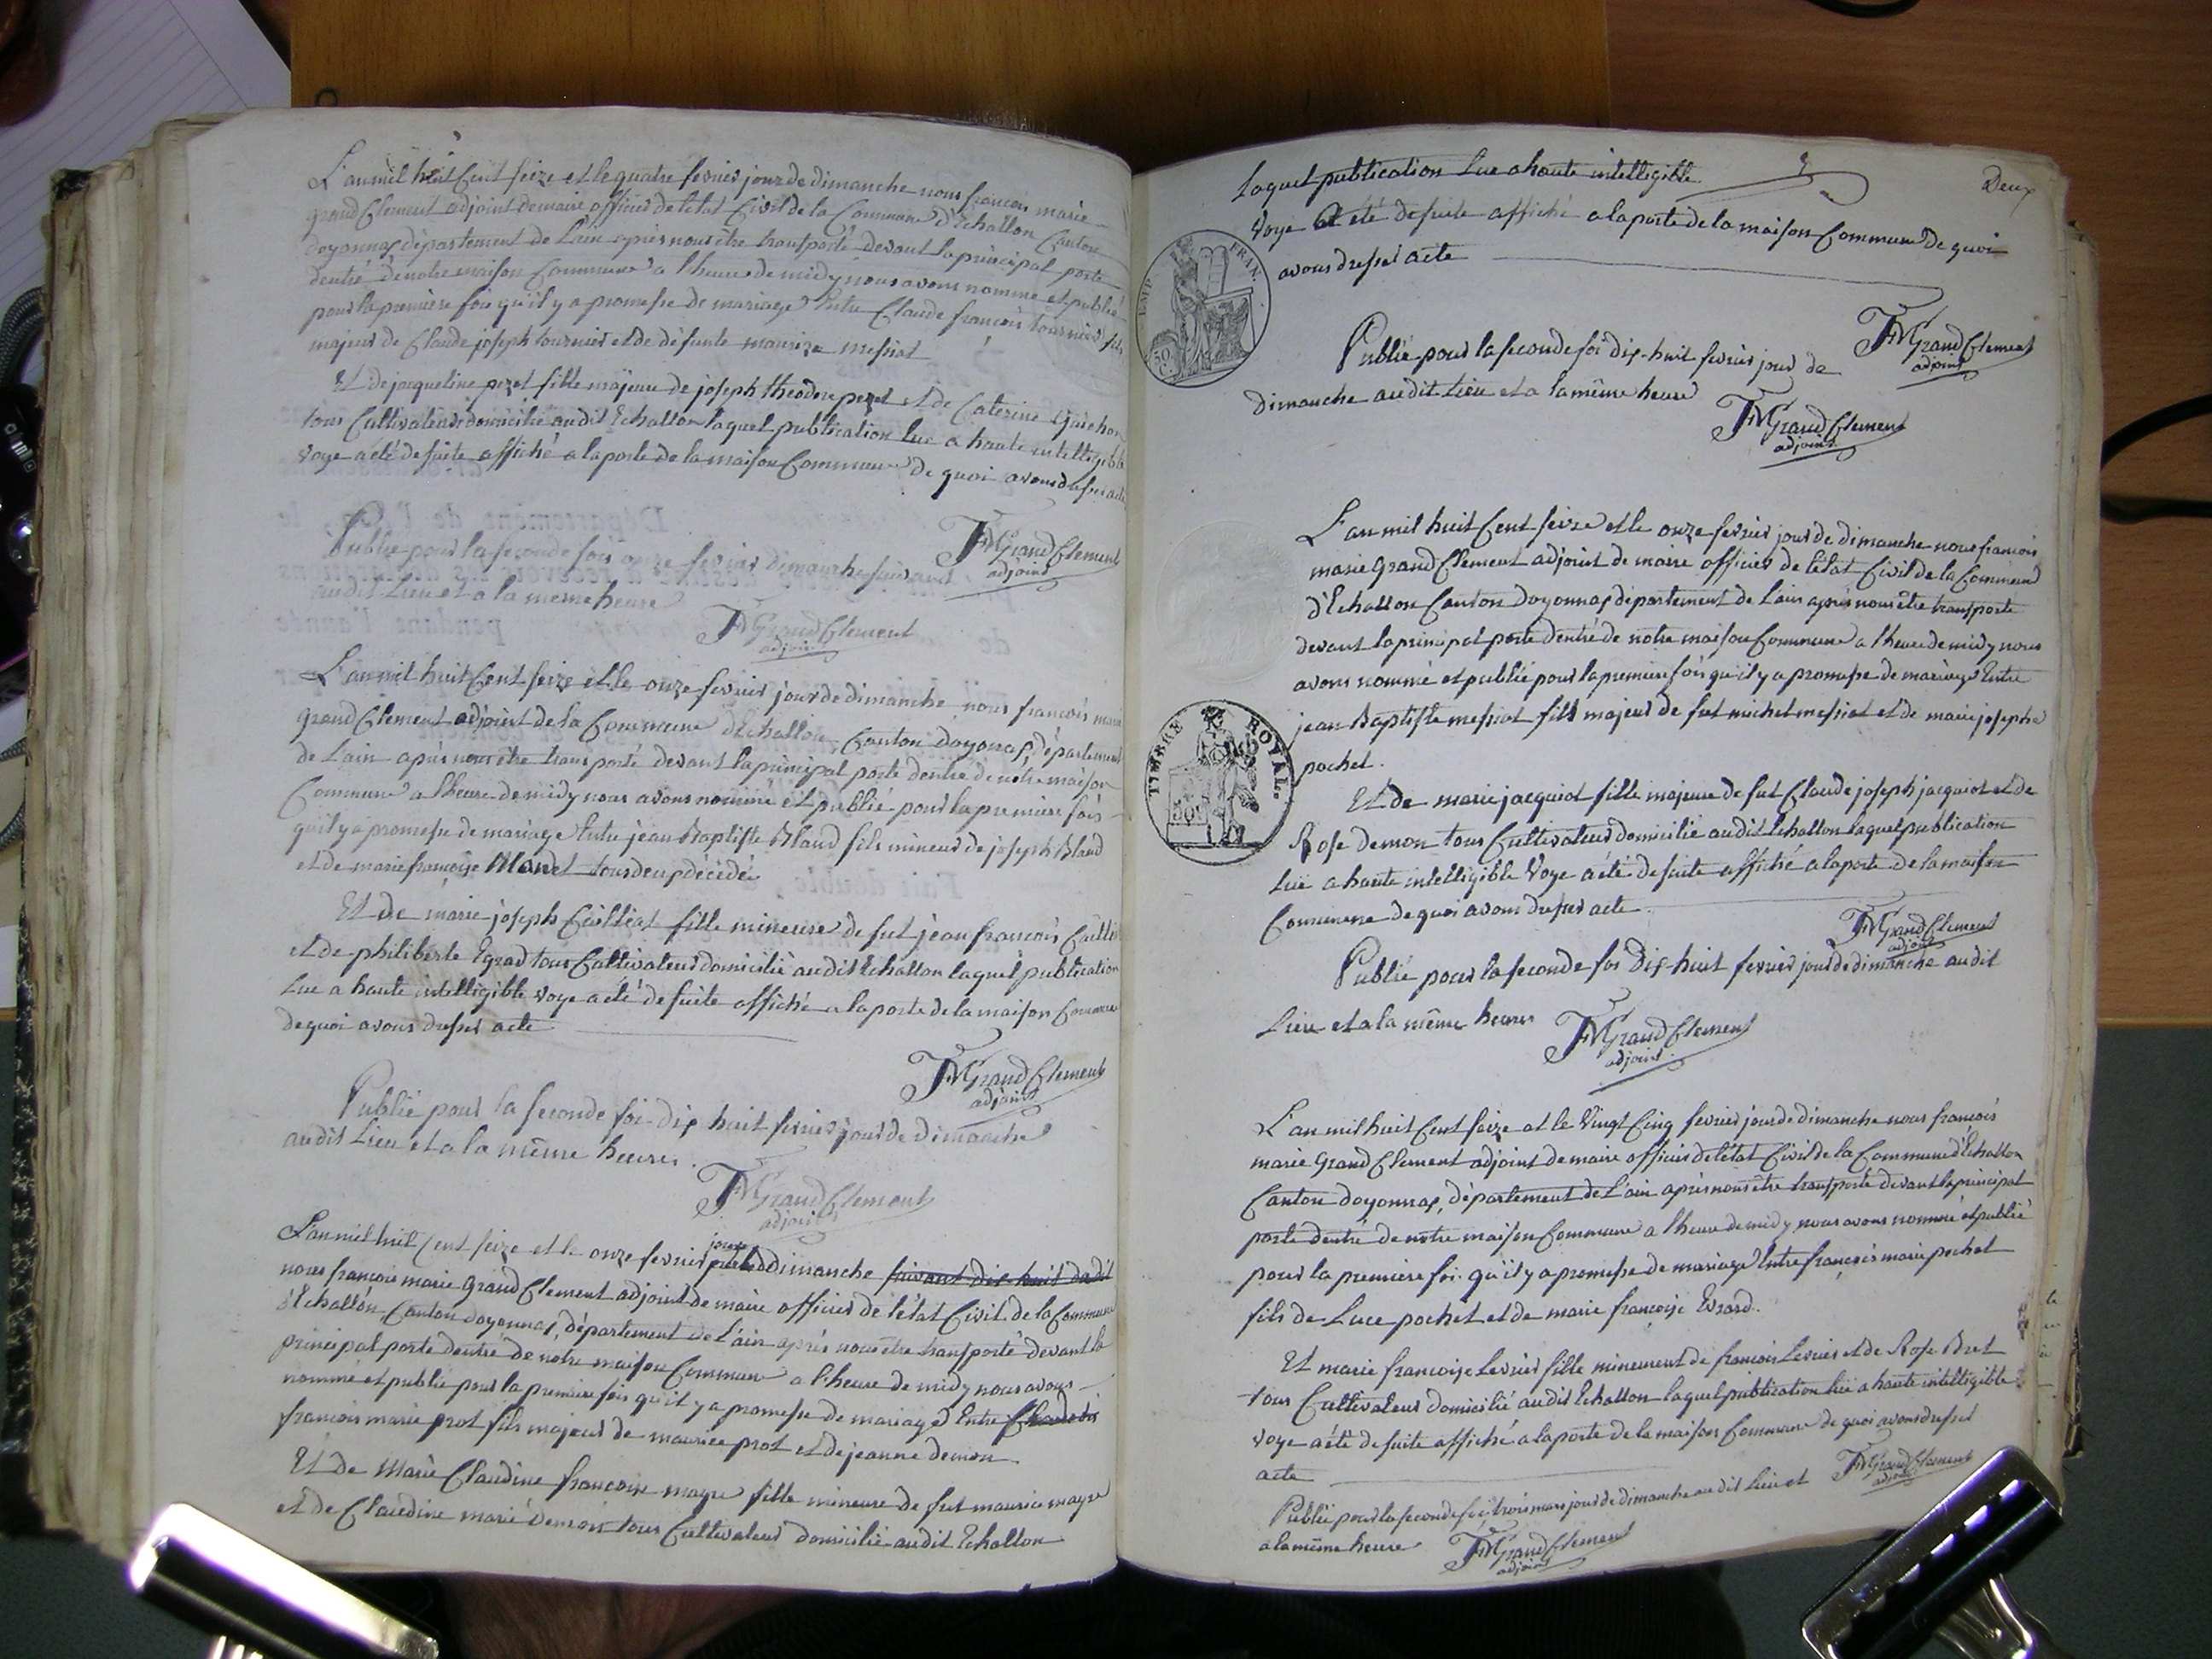 L'an mil huit Cent seize et le quatre fevrier jour de dimanche nous francois marie
grand Clement adjoint de maire officier de letat Civil de la Commune d'Echallon Canton
doyonnax département de Lain après nous être transporté devant la principal porte
dentré de notre maison Commune a l'heure de midy nous avons nommé et publié
pour la première fois qu'il y a promesse de mariage Entre Claude francois tournier fils
majeur de Claude joseph tournier et de défunte maurize messiat
Et de jacqueline pezet fille majeure de joseph théodore pezet et de Caterine Guichon
tous Cultivateurs domicilié audit Echallon laquel publication lue a haute intelligible
Voye a été de suite affiché a la porte de la maison Commune de quoi avons dressé acte
FMGrandClement
adjoint
Publié pour la seconde fois onze fevrier dimanche suivant
audit Lieu et a la meme heure
FMGrandClement
adjoint
L'an mil huit Cent seize et le onze fevrier jour de dimanche nous francois marie
grand Clement adjoint de la Commune d'Echallon Canton doyonnax, département
de Lain après nous être transporté devant la principal porte dentré de notre maison
Commune a l'heure de midy nous avons nommé et publié pour la première fois
qu'il y a promesse de mariage Entre jean Baptiste Bland fils mineur de joseph Bland
et de marie francoise Mandet tous deux décédés
Et de marie joseph Cailliat fille mineure de fut jean francois
et de philiberte Egrad tous Cultivateurs domicilié audit Echallon laquel publication
Lue a haute intelligible voye a été de suite affiché a la porte de la maison Commune
de quoi avons dressé acte
FMGrandClement
adjoint
Publié pour la seconde foi dix huit fevrier jour de dimanche
audit Lieu et a la même heures.
FMGrandClement
adjoint
L'an mil huit Cent seize et le onze fevrier jour de dimanche suivant dix-huit dudit
nous francois marie Grand Clement adjoint de maire officier de l'état Civil de la Commune
d'Echallon Canton doyonnax, département de Lain après nous être transporté devant la
principal porte dentré de notre maison Commune a l'heure de midy nous avons
nommé et publié pour la premiere fois qu'il y a promesse de mariage Entre
francois marie prot fils majeur de maurice prot et de jeanne demon.
Et de Marie Claudine francoise mayre fille mineure de fut maurice mayre
et de Claudine marie demon tous Cultivateurs domicilié audit Echallon
Deux
laquel publication Lue a haute intelligible
Voye a été de suite affiché a la porte de la maison Commune de quoi
avons dressé acte
TIMP. FRAN.
50 C.
FMGrandClement
adjoint
Publié pour la seconde foi dix-huit fevrier jour de
dimanche audit Lieu et a la même heure
FMGrandClement
adjoint
L'an mil huit Cent seize et le onze fevrier jour de dimanche nous francois
marie Grand Clement adjoint de maire officier de létat Civil de la Commune
d'Echallon Canton Doyonnax département de Lain après nous être transporté
devant la principal porte dentré de notre maison Commune a l'heure de midy nous
avons nommé et publié pour la premiere fois qu'il y a promesse de mariage Entre
jean Baptiste messiat fils majeur de fut michel messiat et de marie josephe
pochet.
TIMBRE ROYAL.
50 C
Et de marie jacquiot fille majeure de fut Claude joseph jacquiot et de
Rose demon tous Cultivateurs domicilié audit Echallon laquel publication
Lue a haute intelligible Voye a été de suite affiché a la porte de la maison
Commune de quoi avons dressé acte
FMGrandClement
adjoint
Publié pour la seconde foi Dix-huit fevrier jour de dimanche audit
Lieu et a la même heures
FMGrandClement
adjoint
L'an mil huit Cent seize et le Vingt Cinq fevrier jour de dimanche nous francois
marie Grand Clement adjoint de maire officier de létat Civil de la Commune d'Echallon
Canton doyonnax, département de Lain après nous être transporté devant la principal
porte dentré de notre maison Commune a l'heure de midy nous avons nommé et publié
pour la premiere foi. qu'il y a promesse de mariage Entre francois marie pochet
fils de Luce pochet et de marie francoise Evrard.
Et marie francoise Levrier fille mineurent de francois Levrier et de Rose Bret
tous Cultivateurs domicilié audit Echallon laquel publication lue a haute intelligible
voye a été de suite affiché a la porte de la maison Commune de quoi avons dressé
acte
FMGrandClement
adjoint
Publié pour la seconde foi trois mars jour de dimanche audit Lieu et
a la même heure
FMGrandClement
adjoint